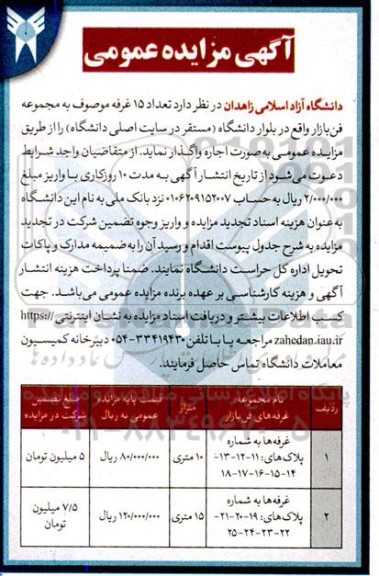 آگهی مزایده عمومی
دانشگاه آزاد اسلامی زاهدان در نظر دارد تعداد ۱۵ غرفه موصوف به مجموعه
فن‌بازار واقع در بلوار دانشگاه (مستقر در سایت اصلی دانشگاه) را از طریق
مزایده عمومی به‌صورت اجاره واگذار نماید. از متقاضیان واجد شرایط
دعوت می‌شود از تاریخ انتشار آگهی به مدت ۱۰ روزکاری با واریز مبلغ
۲/۰۰۰/۰۰۰ ریال به حساب ۰۱۰۶۲۰۹۱۵۲۰۰۷ نزد بانک ملی به نام این دانشگاه
به عنوان هزینه اسناد تجدید مزایده و واریز وجوه تضمین شرکت در تجدید
مزایده به شرح جدول پیوست اقدام و رسید آن را به ضمیمه مدارک و پاکات
تحویل اداره کل حراست دانشگاه نمایند. ضمنا پرداخت هزینه انتشار
آگهی و هزینه کارشناسی بر عهده برنده مزایده عمومی می‌باشد. جهت
کسب اطلاعات بیشتر و دریافت اسناد مزایده به نشان اینترنتی https://
zahedan.iau.ir مراجعه یا با تلفن ۳۳۴۱۹۴۳۰-۰۵۴ دبیرخانه کمیسیون
معاملات دانشگاه تماس حاصل فرمایند.
ردیف | نام مجموعه غرفه‌های فن‌بازار | متراژ | قیمت پایه مزایده عمومی به ریال | مبلغ تضمین شرکت در مزایده
۱ | غرفه‌ها به شماره پلاک‌های: ۱۱-۱۲-۱۳-۱۴-۱۵-۱۶-۱۷-۱۸ | ۱۰ متری | ۸۰/۰۰۰/۰۰۰ ریال | ۵ میلیون تومان
۲ | غرفه‌ها به شماره پلاک‌های: ۱۹-۲۰-۲۱-۲۲-۲۳-۲۴-۲۵ | ۱۵ متری | ۱۲۰/۰۰۰/۰۰۰ ریال | ۷/۵ میلیون تومان